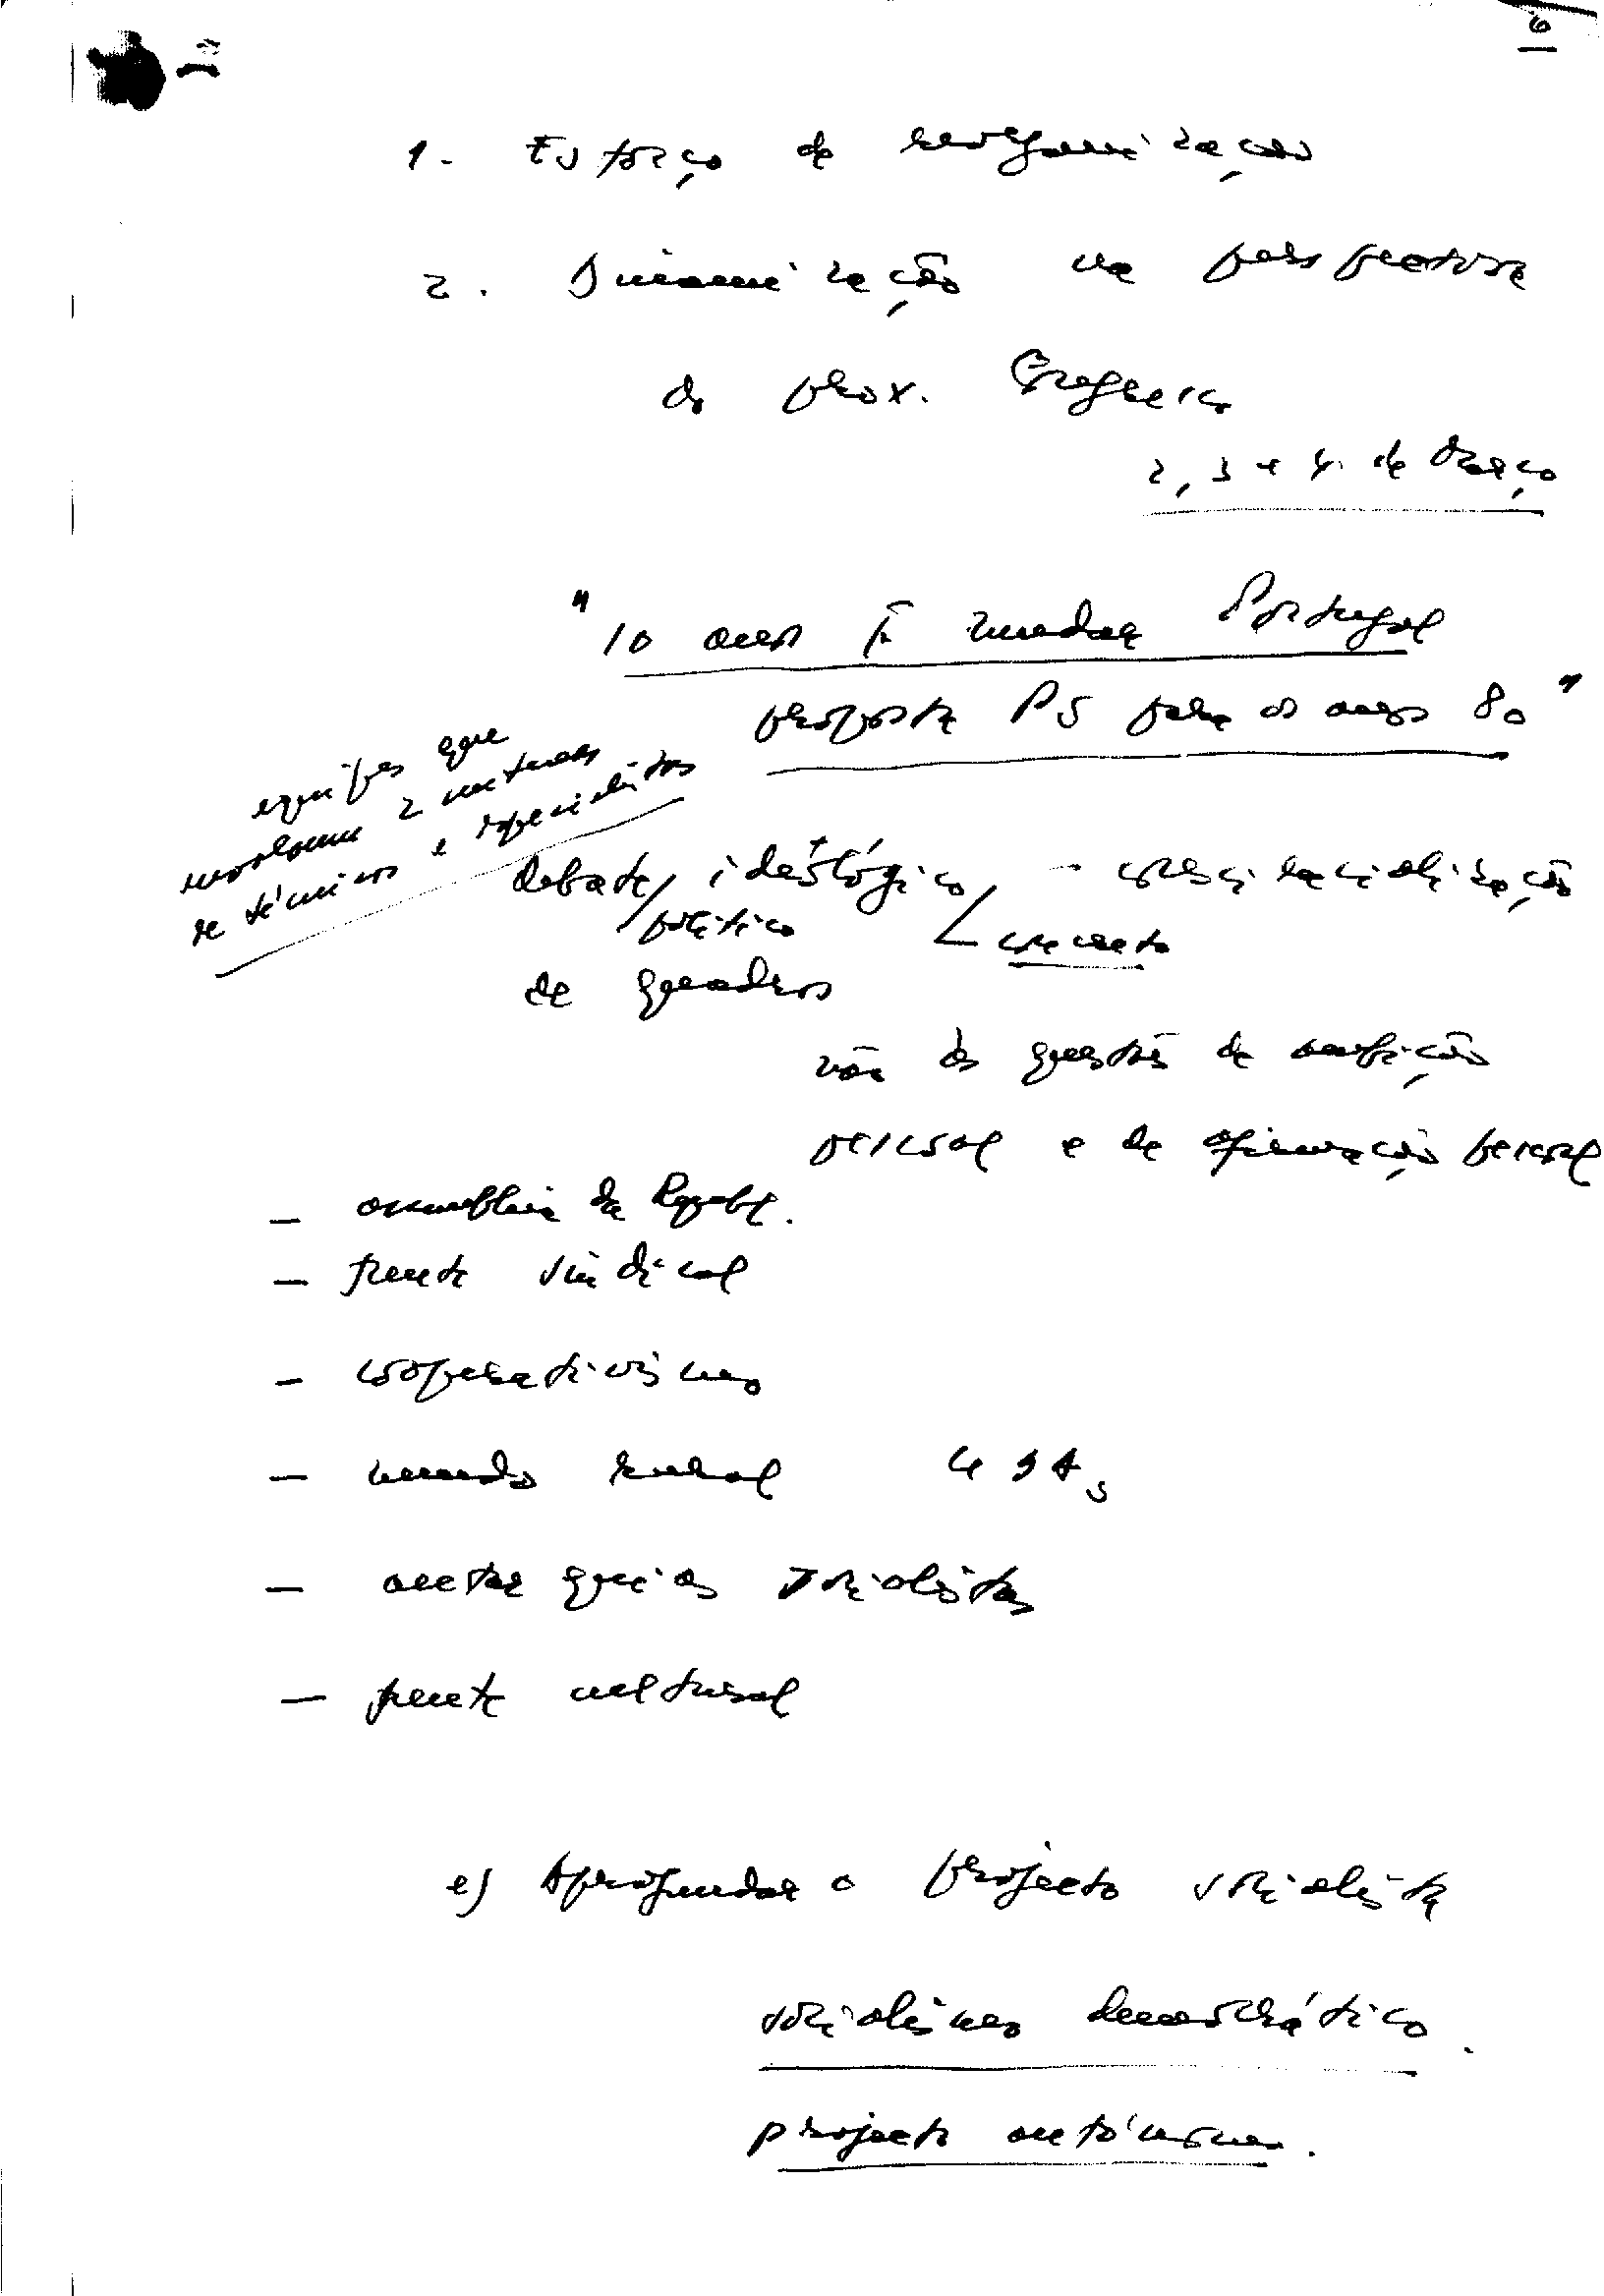 6
1. Esforço de reorganização
2. Dinamização na perspectiva
do prox. Congresso
2, 3 e 4 de Março
"10 anos p.ª mudar Portugal
proposta PS para os anos 80"
equipes que
envolvem
de técnicos e especialistas
Debate ideológico - consciencialização
/político / concreto
de quadros
não às questões de ambição
pessoal e de afirmação pessoal
- assembleia da Republ.
- frente sindical
- cooperativismo
- mundo rural
- autarquias socialistas
- frente cultural
e) Aprofundar o projecto socialista
socialismo democrático.
projecto autónomo.